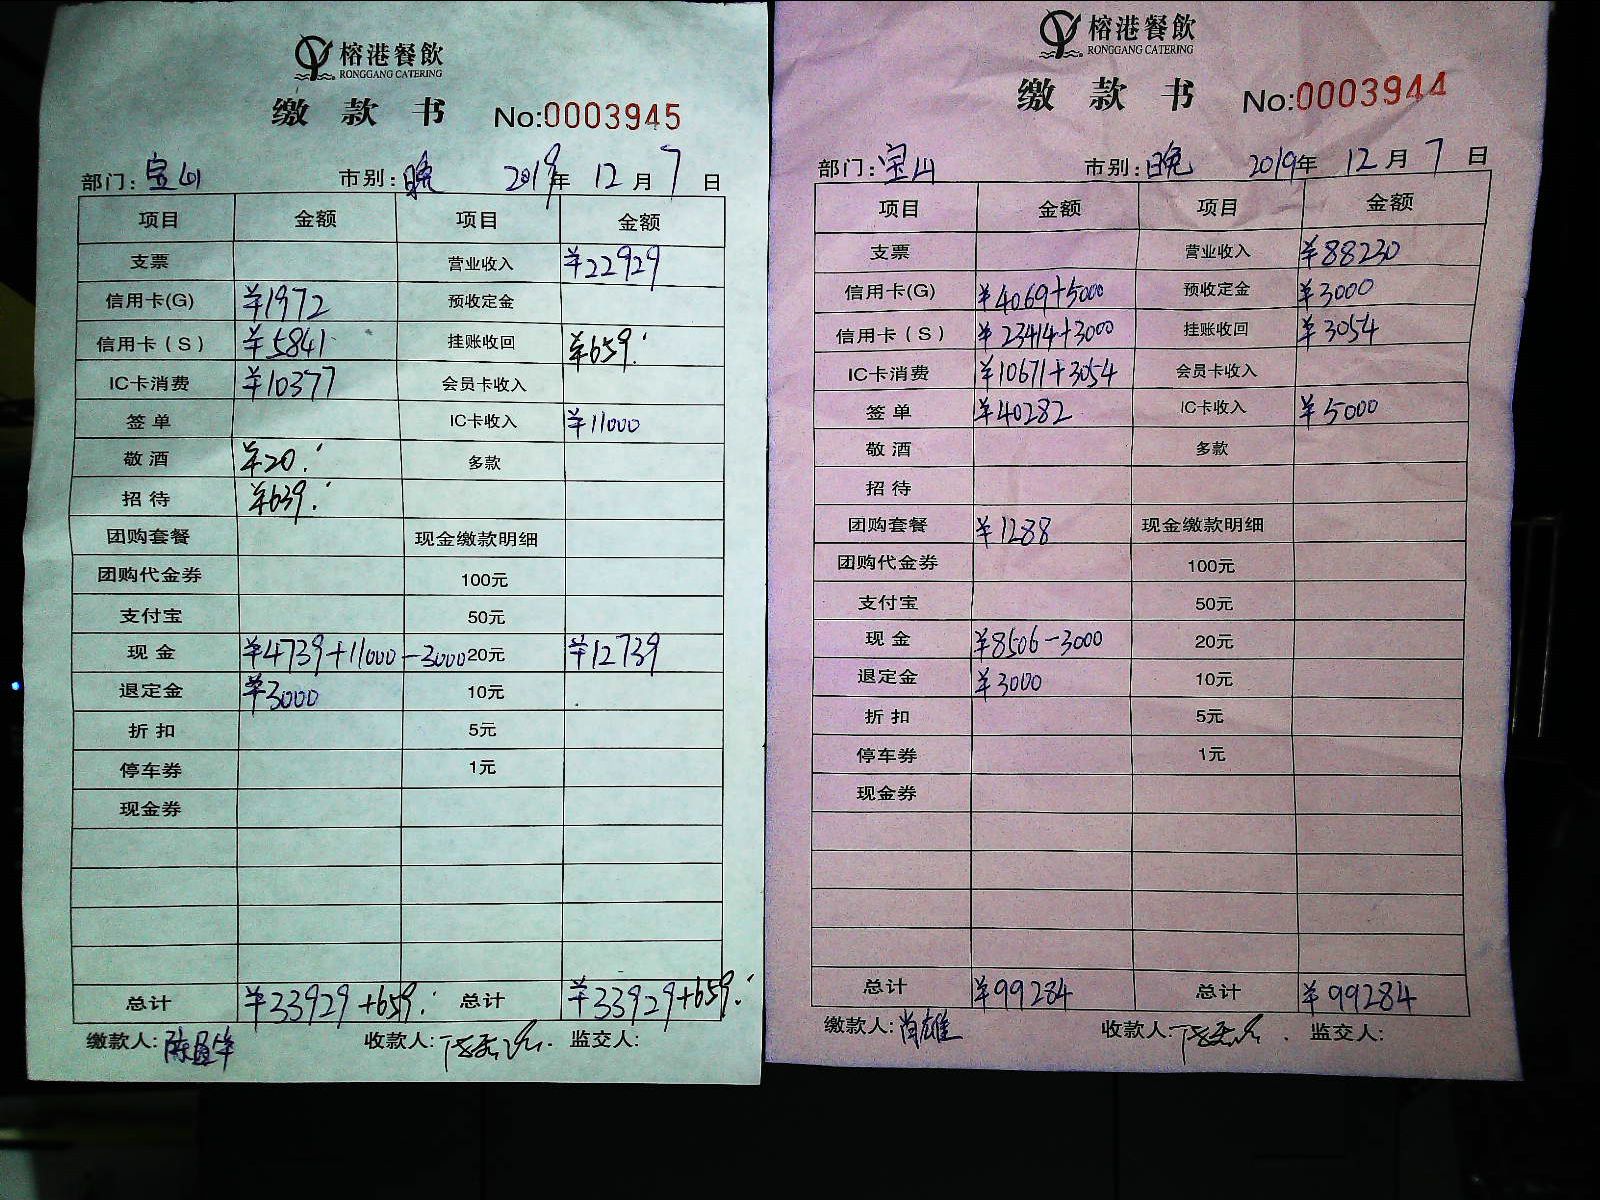 榕港餐飲
RONGGANG CATERING
缴款书 No:0003945
部门:宝山 市别:晚 2019年12月7日
项目 金额 项目 金额
支票 营业收入 ¥22929
信用卡(G) ¥1972 预收定金
信用卡(S) ¥5841 挂账收回 ¥659.
IC卡消费 ¥10377 会员卡收入
签单 IC卡收入 ¥11000
敬酒 ¥20. 多款
招待 ¥639.
团购套餐 现金缴款明细
团购代金券 100元
支付宝 50元
现金 ¥4739+11000-3000 20元 ¥12739
退定金 ¥3000 10元
折扣 5元
停车券 1元
现金券
总计 ¥33929+659. 总计 ¥33929+659.
缴款人: 收款人: 监交人:
榕港餐飲
RONGGANG CATERING
缴款书 No:0003944
部门:宝山 市别:晚 2019年12月7日
项目 金额 项目 金额
支票 营业收入 ¥88230
信用卡(G) ¥4069+5000 预收定金 ¥3000
信用卡(S) ¥23414+3000 挂账收回 ¥3054
IC卡消费 ¥10671+3054 会员卡收入
签单 ¥40282 IC卡收入 ¥5000
敬酒 多款
招待
团购套餐 ¥1288 现金缴款明细
团购代金券 100元
支付宝 50元
现金 ¥8506-3000 20元
退定金 ¥3000 10元
折扣 5元
停车券 1元
现金券
总计 ¥99284 总计 ¥99284
缴款人:肖雄 收款人: 监交人: